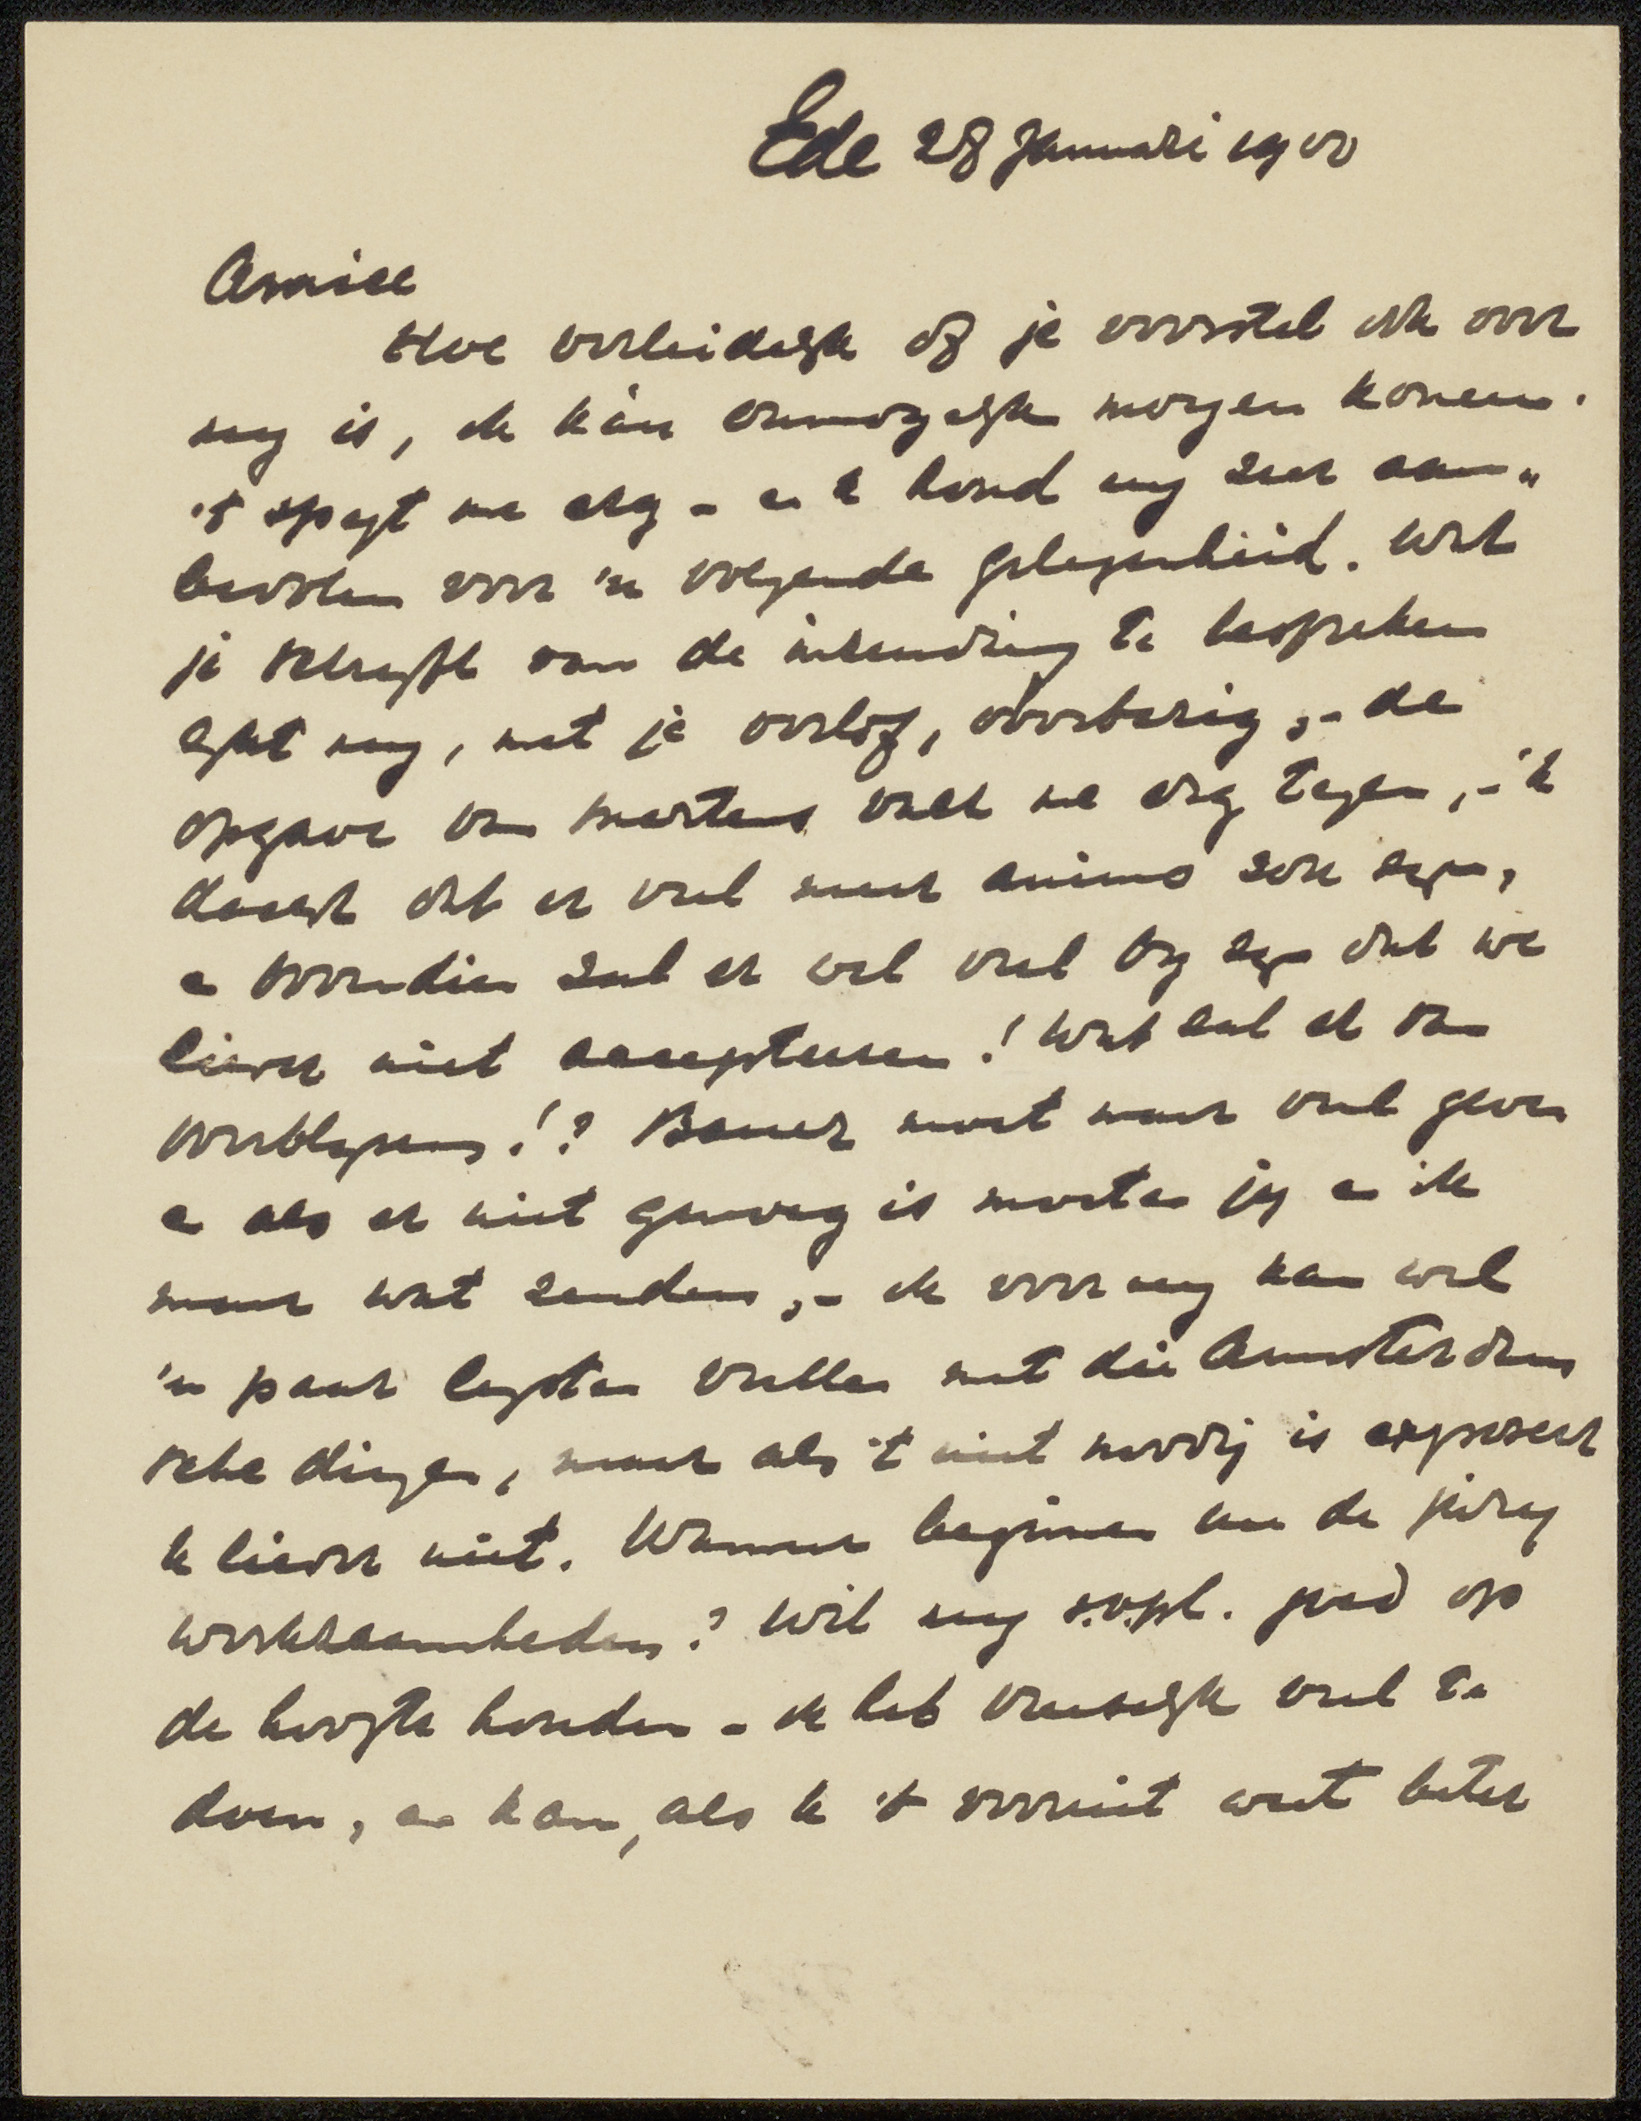 Ede 28 Januari 1900
Amice
Hoe verleidelijk of je voorstel ook voor
mij is, ik kàn onmogelijk morgen komen.
't spijt me erg - en k houd mij zeer aan"
bevolen voor 'n volgende gelegenheid. Wat
je schrijft van de inzending te bespreken
lijkt mij, met je verlof, voorbarig, - de
opgave van Martens valt me erg tegen, - 'k
dacht dat er veel meer animo zou zijn,
en bovendien zal er wel veel bij zijn dat we
liever niet accepteeren! Wat zal er van
overblijven!? Bauer moet maar veel geven
en als er niet genoeg is moeten jij en ik
maar wat zenden, - ik voor mij kan wel
'n paar lijsten vullen met die Amsterdam
sche dingen, maar als 't niet noodig is exposeer
k liever niet. Wanneer beginnen we de jury
werkzaamheden? Wil mij s.v.pl. goed op
de hoogte houden - ik heb vreeselijk veel te
doen, en kan, als k 't vooruit weet beter